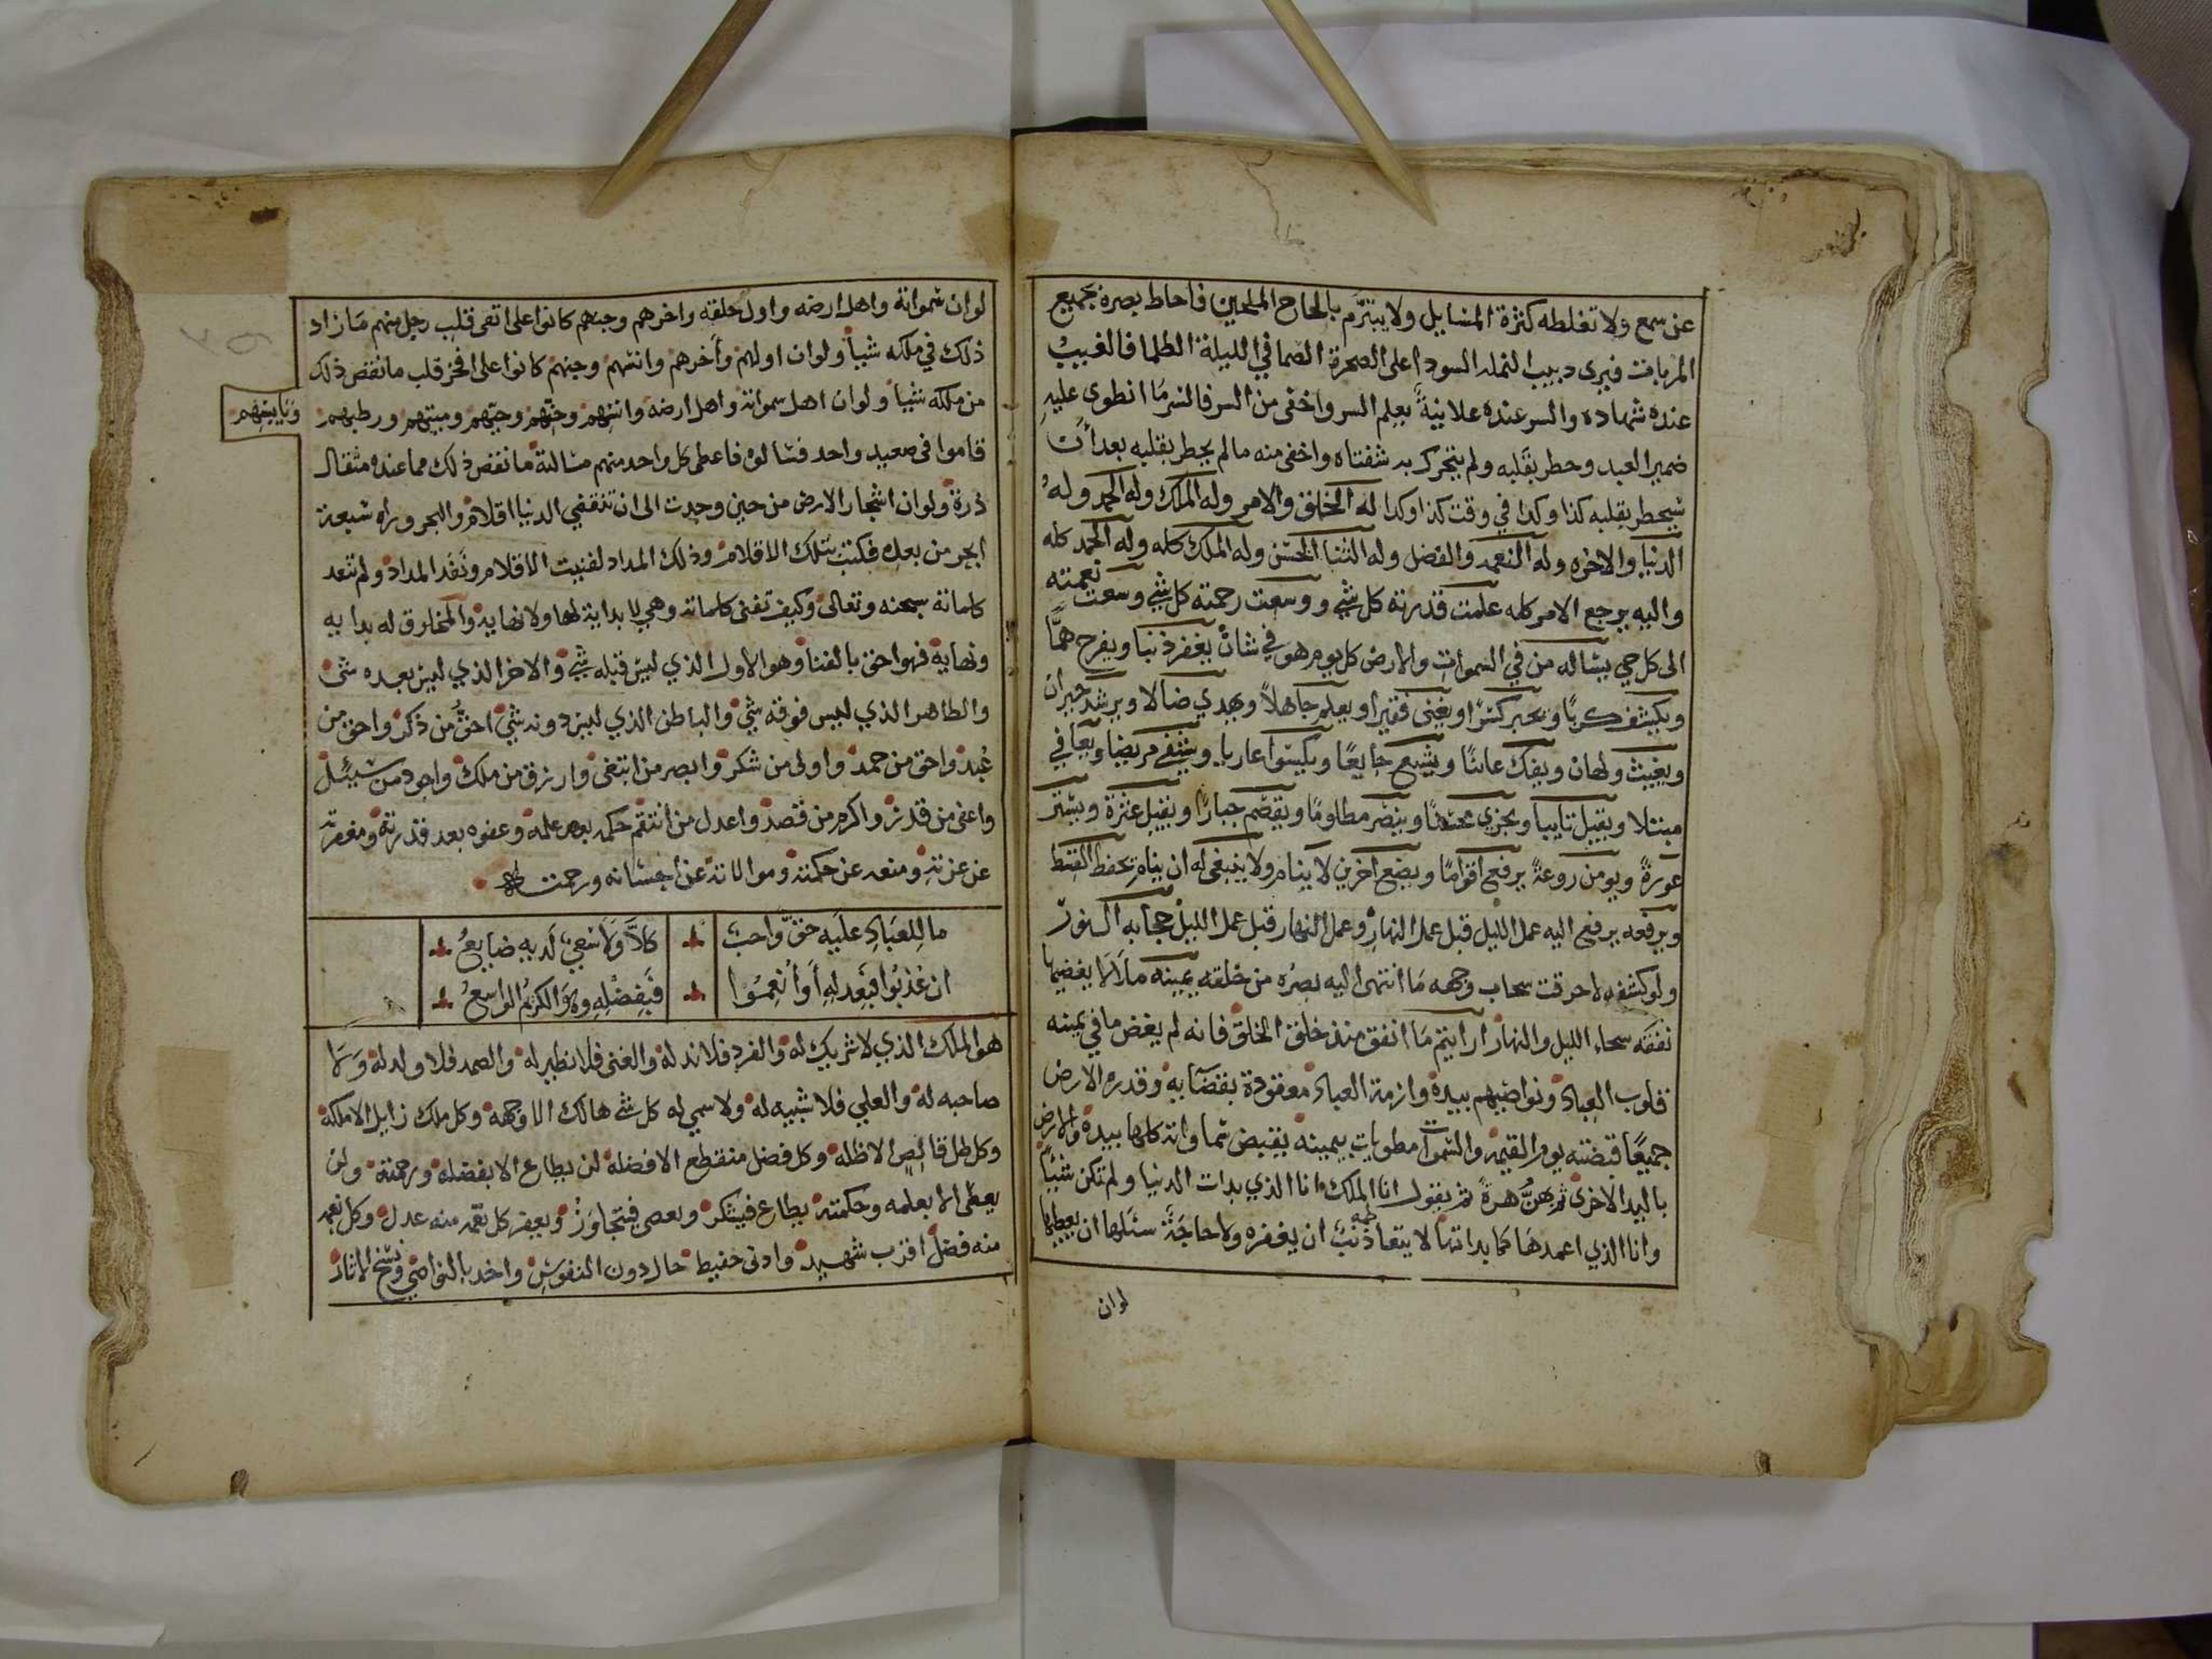 عن سمع ولا تغلطه كثرة المسايل ولا يتبرّم بالحاح الملحين فاحاط بصره بجميع
المريات فيرى دبيب النمله السودا على الصخرة الصما في الليلة الظلما فالغيبُ
عنده شهاده والسر عنده علانيةً يعلم السر واخفى من السر فالسر مَا انطوى عليهِ
ضمير العبد وخطر بقلبه ولم يتحرك به شفتاه واخفى منه مالم يخطر بقلبه بعد أن
سيخطر بقلبه كذا وكدا في وقت كذا وكدا له الخلق والامر وله الملك وله الحمد ولهُ
الدنيا والاخره وله النعمه والفضل وله الثنا الحسن وله الملك كله وله الحمد كله
واليه يرجع الامر كله علمت قدرته كل شي ووسعت رحمته كل شي وسعت نعمته
الى كل حي يساله من في السموات والارض كل يوم هو في شان يغفر ذنبا ويفرج همًّا
ويكشف كربًا ويجبر كسرًا ويغنى فقيرا ويعلم جاهلاً ويهدي ضالا ويرشد حيران
ويغيث ولهان ويفك عانيًا ويشبع جايعًا ويكسوا عاريا ويشفي مريضا ويعافي
مبتلا ويقبل تايبا ويجزي محسنًا وينصر مظلومًا ويقصم جبارًا ويقيل عثرة ويستر
عورةً ويومن روعةً يرفع اقوامًا ويضع آخرين لا ينام ولا ينبغى له ان ينام يخفظ القسط
ويرفعه يرفع اليه عمل الليل قبل عمل النهار وعمل النهار قبل عمل الليل حجابه النور
ولو كشفه لاحرقت سحاب وجهه مَا انتهى اليه بصره من خلقه يمينه ملاَلا يغضيها
نفقه سحاء الليل والنهار ارايتم مَا انفق منذ خلق الخلق فانه لم يغض ما في يمينه
قلوب العباد ونواصيهم بيده وازمة العباد معقودة بقضآيه وقدره الارض
جميعًا قبضته يوم القيمة والسموات مطويات بيمينه يقبض سماواته كلها بيده والارض
باليد الاخرى ثم يهزُّ هزةً ثم يقول انا الملك انا الذي بدات الدنيا ولم تكن شيًا
وانا الذي اعمدهَا كما بداتها لا يتعاظمه ذنبٌ ان يغفره ولا حاجَةً سئلها ان يعطيها
لوان
لوان سمواته واهل ارضه واول خلقه واخرهم وجنهم كانوا على اتقى قلب رجل منهم مَا زاد
ذلك في ملكه شيأ ولوان اولهم وأخرهم وانسهم وجنهم كانوا على افجر قلب ما نقص ذلك
من ملكه شيأ ولوان اهل سمواته واهل ارضه وانسهم وجنّهم وحيّهم وميتهم ورطبهم
وَيَابِسَهم
قاموا في صعيد واحد فسالوه فاعطى كل واحد منهم مسالته ما نقص ذلك مما عنده مثقال
ذرة ولوان اشجار الارض من حين وجدت الى ان تنقضي الدنيا اقلام والبحر وراه سبعة
ابحر من بعده فكتبت بتلك الاقلام وذلك المداد لفنيت الاقلام ونَفَد المداد ولم تنفد
كلماته سبحنه وتعالى وكيف تفنى كلماته وهي لا بداية لها ولا نهاية والمخلوق له بدايه
ونهاية فهو احق بالفنا وهو الاول الذي ليس قبله شي والاخر الذي ليس بعده شى
والظاهر الذي ليس فوقه شي والباطن الذي ليس دونه شي احقُّ من ذكر واحق من
عُبد واحق من حمد واولى من شكر وابصر من ابتغى وارزق من ملك واجود من سيُل
واعفى من قدر واكرم من قصد واعدل من انتقم حكمه بعد علمه وعفوه بعد قدرته ومغفرته
عن عزته ومنعه عن حكمته وموالاته عن احسانه ورحمته
ما لِلعبَادِ علَيه حَق وَاجب كَلاَّ وَلا سَعيٌ لَديهِ ضايعُ
ان عُذبُوا فبعَدلهِ أَو أنْعِمُوا فَبِفَضْلِهِ وهوَ الكريُم الواسِعُ
هو الملك الذي لا شريك له والفرد فلا ند له والغنى فلا نظير له والصمد فلا ولد له وَلا
صاحبه له والعلي فلا شبيه له ولا سمي له كل شي هالك الا وجهه وكل ملك زايل الا ملكه
وكل ظل قالص الا ظله وكل فضل منقطع الا فضله لن يطاع الا بفضله ورحمته ولن
يعطى الا بعلمه وحكمته يطاع فيشكر ويعصى فيتجاوز ويغفر كل نقمه منه عدل وكل نعمه
منه فضل اقرب شهيد وادنى حفيظ حال دون النفوس واخد بالنواصي ونسخ الاثار